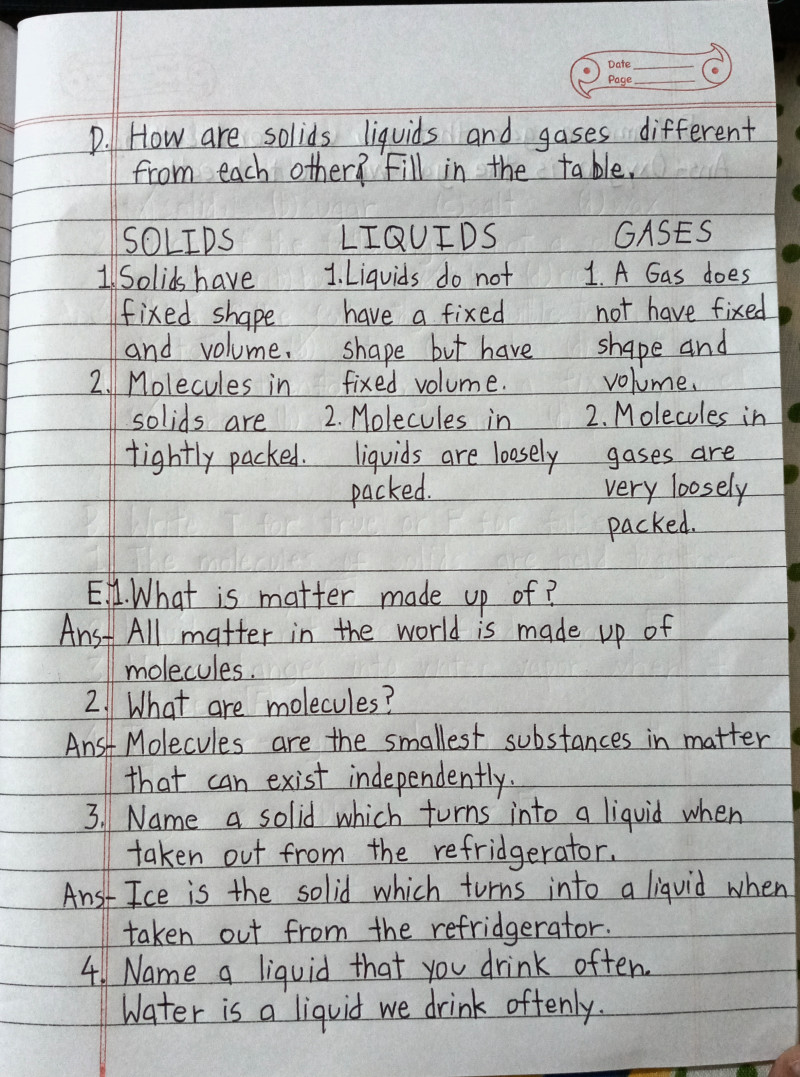 Date
Page
D. How are solids liquids and gases different
from each other? Fill in the table.
SOLIDS
1. Solids have
fixed shape
and volume.
2. Molecules in
solids are
tightly packed.
LIQUIDS
1. Liquids do not
have a fixed
shape but have
fixed volume.
2. Molecules in
liquids are loosely
packed.
GASES
1. A Gas does
not have fixed
shape and
volume.
2. Molecules in
gases are
very loosely
packed.
E.1. What is matter made up of?
Ans- All matter in the world is made up of
molecules.
2. What are molecules?
Ans- Molecules are the smallest substances in matter
that can exist independently.
3. Name a solid which turns into a liquid when
taken out from the refridgerator.
Ans- Ice is the solid which turns into a liquid when
taken out from the refridgerator.
4. Name a liquid that you drink often.
Water is a liquid we drink oftenly.